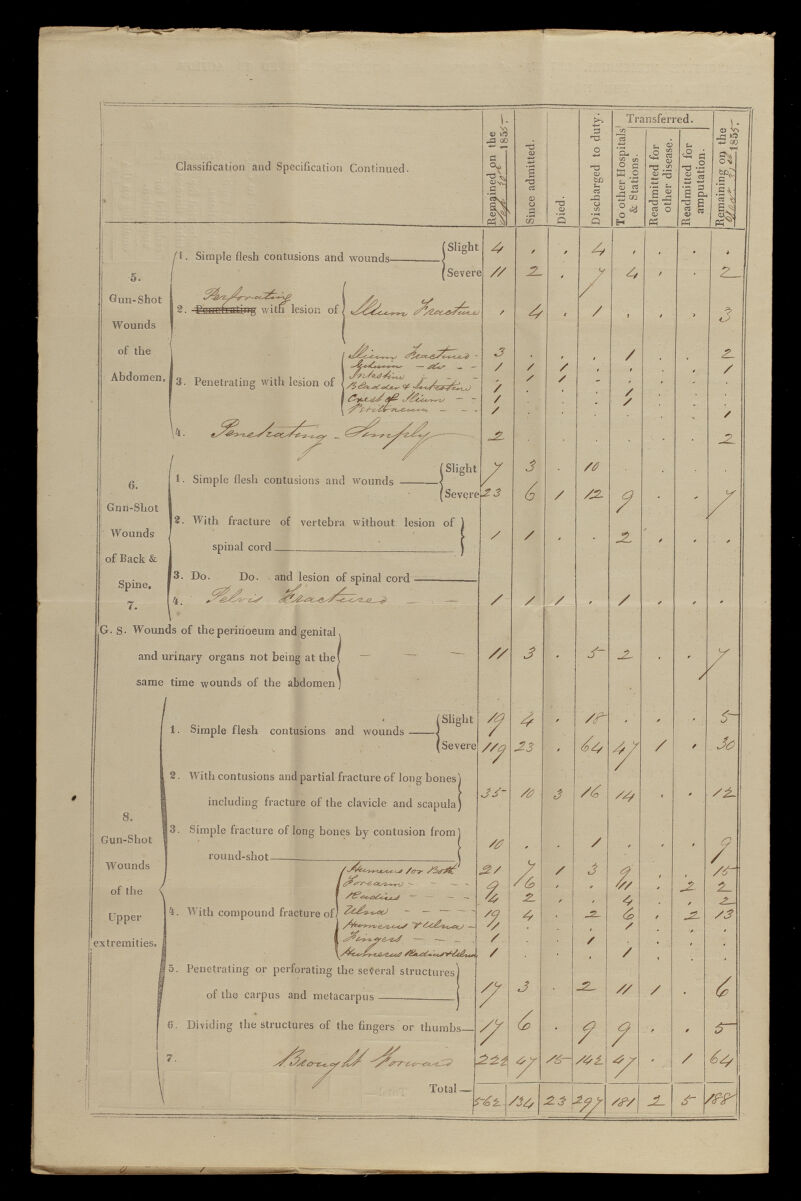 Classification and Specification Continued.
Remained on the Sept 30th 1855.
Since admitted.
Died.
Discharged to duty.
Transferred.
To other Hospitals & Stations.
Readmitted for other disease.
Readmitted for amputation.
Remaining on the 31st 1855.
5.
Gun-Shot
Wounds
of the
Abdomen.
1. Simple flesh contusions and wounds
Slight 4 . . 4 . . . .
Severe 11 2 . 7 4 . . 2
2. Perforating Penetrating with lesion of Ilium Fracture . 4 . 1 . . . 3
3. Penetrating with lesion of
Ilium Fractured - 3 . . . 1 . . 2
- do - - 1 1 1 . . . . 1
Intestine - - . 1 1 . . . . .
Bladder & Intestine 1 . . . 1 . . .
Crest of Ilium - - 1 . . . 1 . . .
Peritoneum - - - 1 . . . . . . 1
4. Penetrating - Simply 2 . . . . . . 2
6.
Gnn-Shot
Wounds
of Back &
Spine.
1. Simple flesh contusions and wounds
Slight 7 3 . 10 . . . .
Severe 23 6 1 12 9 . . 7
2. With fracture of vertebra without lesion of
spinal cord 1 1 . . 2 . . .
3. Do. Do. and lesion of spinal cord
4. Pelvis Fractured - - 1 1 1 . 1 . . .
7.
G. S. Wounds of the perinoeum and genital
and urinary organs not being at the - - - 11 3 . 5 2 . . 7
same time wounds of the abdomen
8.
Gun-Shot
Wounds
of the
Upper
extremities.
1. Simple flesh contusions and wounds
Slight 19 4 . 18 . . . 5
Severe 119 23 . 64 47 1 . 30
2. With contusions and partial fracture of long bones
including fracture of the clavicle and scapula 35 10 3 16 14 . . 12
3. Simple fracture of long bones by contusion from
round-shot 10 . . 1 . . . 9
4. With compound fracture of
Humerus 1 or Both 21 7 1 3 9 . . 15
Forearm - - - - 9 6 . . 11 . 2 2
Radius - - - 4 2 . . 4 . . 2
Ulna - - - - 19 4 . 2 6 . 2 13
Humerus & Ulna - 1 . . . 1 . . .
Fingers - - - 1 . . 1 . . . .
Humerus Radius & Ulna 1 . . . 1 . . .
5. Penetrating or perforating the several structures
of the carpus and metacarpus 17 3 . 2 11 1 . 6
6. Dividing the structures of the fingers or thumbs 17 6 . 9 9 . . 5
7. Brought Forward 222 47 15 142 47 . 1 64
Total 562 134 23 297 181 2 5 188